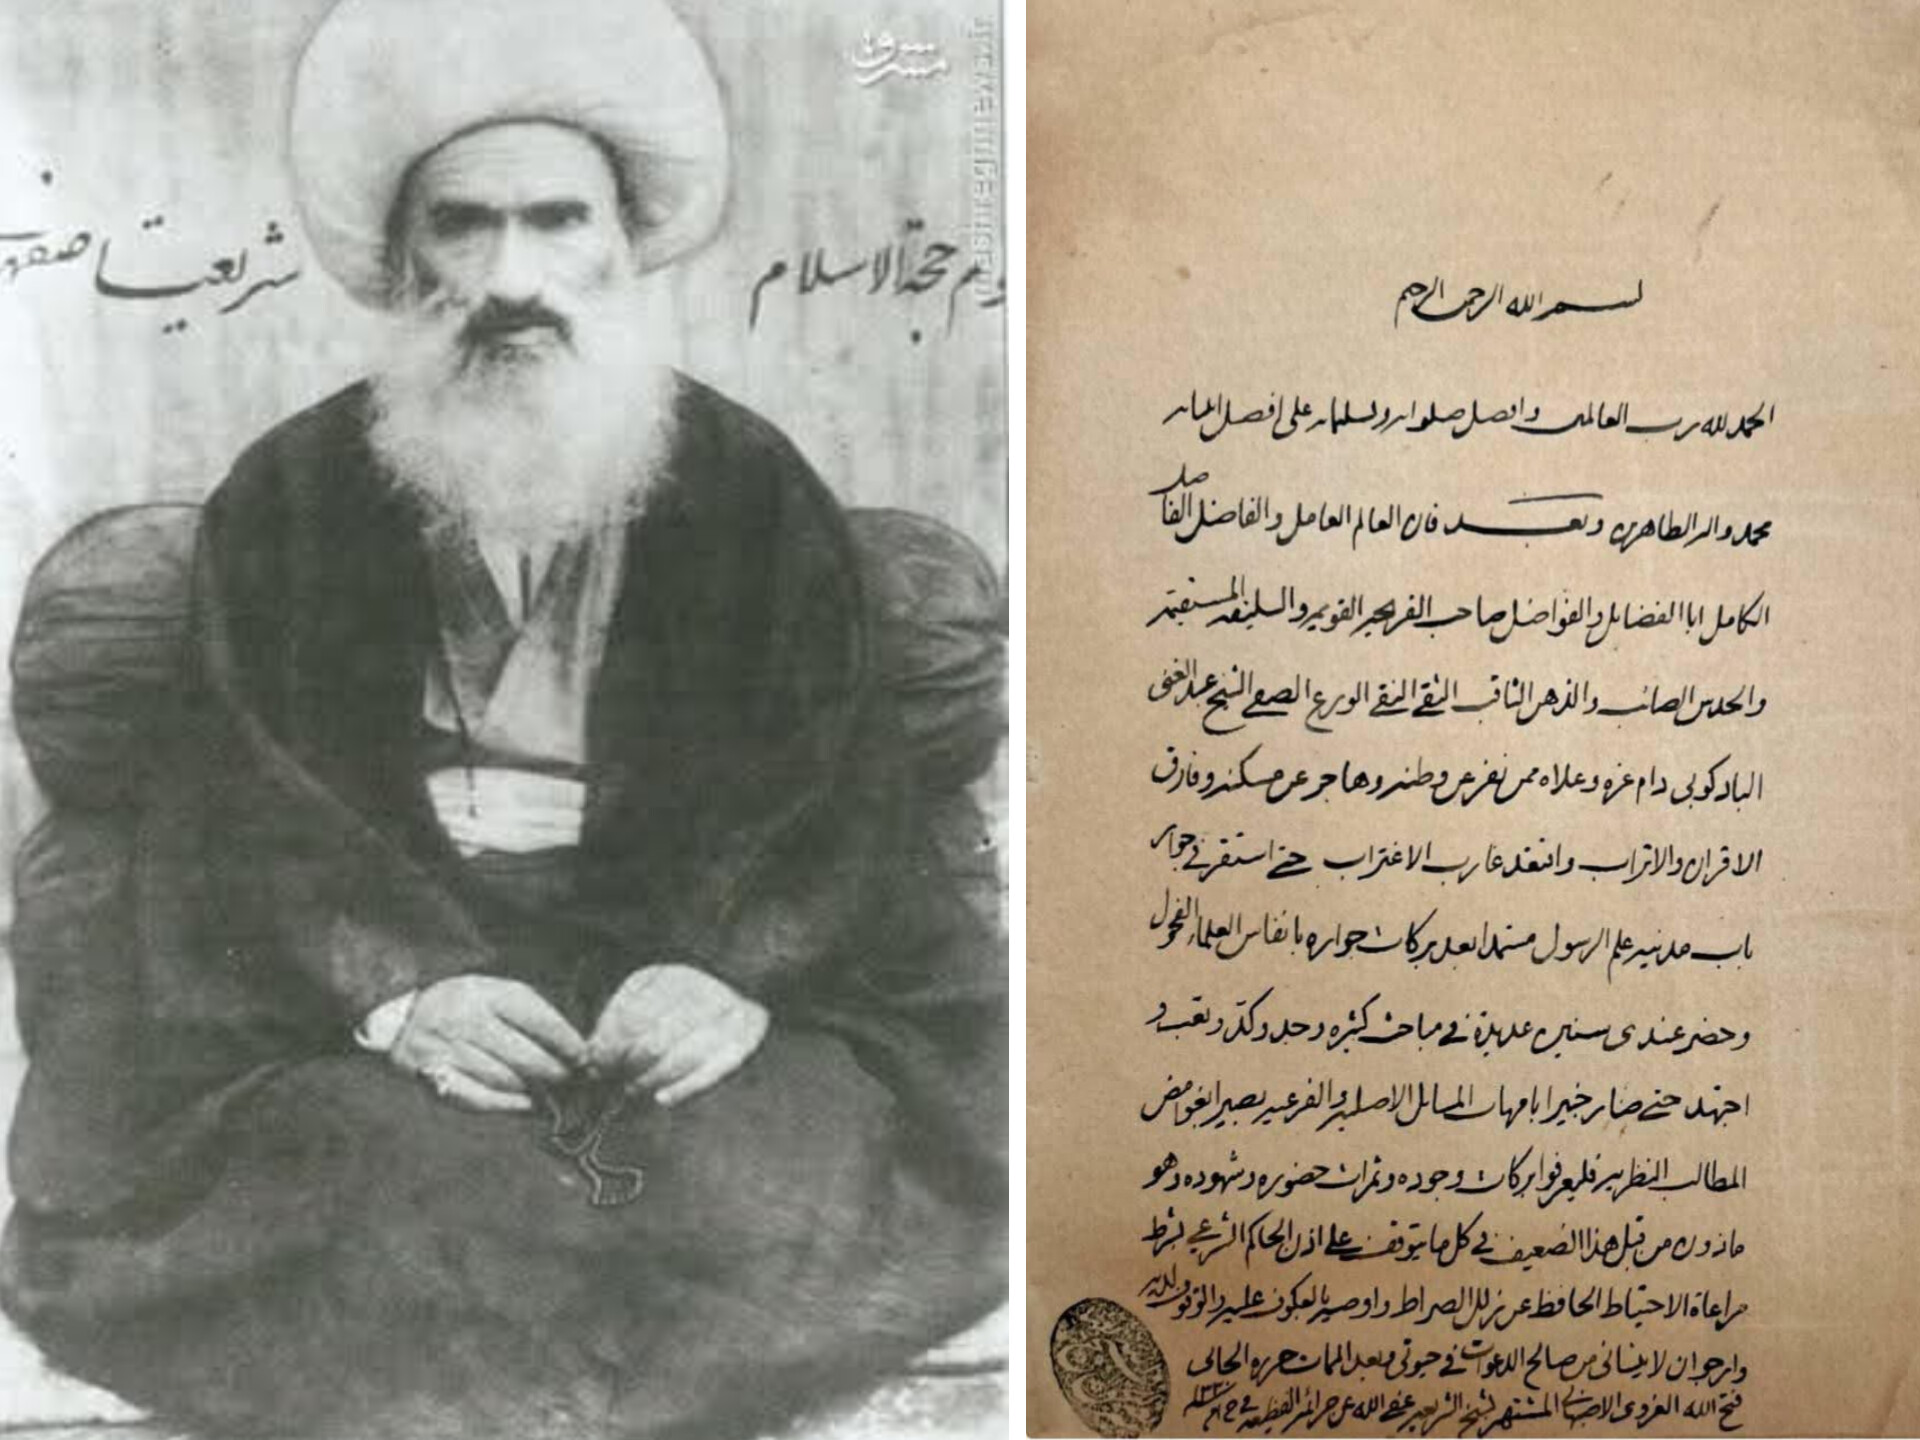 مشرق
mashreghnews.ir
حجة الاسلام
شریعت اصفهان
بسم الله الرحمن الرحیم
الحمد لله رب العالمین وافضل صلواته وتسلیماته علی افضل
محمد واله الطاهرین وبعد فان العالم العامل والفاضل الفاضل
الکامل ابا الفضایل والفواضل صاحب القریحه القویمه والسلیقه المستقیمه
والحدس الصائب والذهن الثاقب التقی النقی الورع الصفی الشیخ عبد الغنی
البادکوبی دام عزه وعلاه ممن نفر عن وطنه وهاجر عن مسکنه وفارق
الاقران والاتراب واقتعد غارب الاغتراب حتی استقر فی جوار
باب مدینه علم الرسول مستمدا بعد برکات جواره بانفاس العلماء الفحول
وحضر عندی سنین عدیدة فی مباحث کثیره وجد وکد وتعب و
اجتهد حتی صار خبیرا بامهات المسائل الاصلیه والفرعیه بصیرا بغوامض
المطالب النظریه فلیعرفوا برکات وجوده وثمرات حضوره وشهوده وهو
ماذون من قبل هذا الضعیف فی کل ما یتوقف علی اذن الحاکم الشرعی بشرط
مراعاة الاحتیاط الحافظ عن زلل الصراط واوصیه بالعکوف علیه والوقوف لدیه
وارجو ان لا ینسانی من صالح الدعوات فی حیوتی وبعد الممات حرره الجانی
فتح الله الغروی الاصبهانی المشتهر بشیخ الشریعه عفی الله عن جرائمه الفظیعه فی